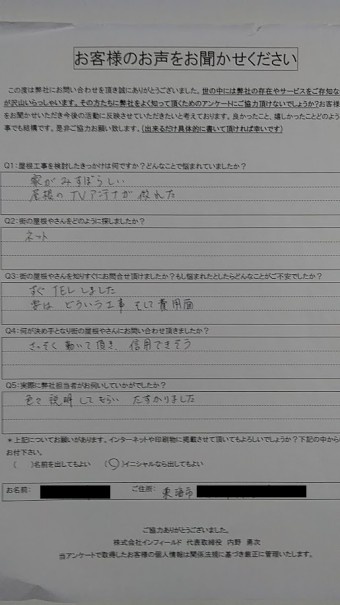 お客様のお声をお聞かせください
この度は弊社にお問い合わせを頂き誠にありがとうございます。世の中には弊社の存在やサービスをご存知な
が沢山いらっしゃいます。その方たちに弊社をよく知って頂くためのアンケートにご協力頂けないでしょうか?お客様
をお聞かせいただき今後の活動に反映させていただきたいと考えております。良かったこと、嬉しかったことどのよう
事でも結構です。是非ご協力お願い致します。(出来るだけ具体的に書いて頂ければ幸いです)
Q1:屋根工事を検討したきっかけは何ですか?どんなことで悩まれていましたか?
家がみすぼらしい
屋根のTVアンテナが倒れた
Q2:街の屋根やさんをどのように探しましたか?
ネット
Q3:街の屋根やさんを知りすぐにお問合せ頂けましたか?もし悩まれたとしたらどんなことがご不安でしたか?
すぐTELしました
どういう工事 そして費用面
Q4:何が決め手となり街の屋根やさんにお問い合わせ頂きましたか?
さっそく動いて頂き、信用できそう
Q5:実際に弊社担当者がお伺いしていかがでしたか?
説明してもらい たすかりました
*上記についてお願いがあります。インターネットや印刷物に掲載させて頂いてもよろしいでしょうか?下記の中から
お付下さい。
( )名前を出してもよい (○)イニシャルなら出してもよい
お名前: ご住所: 東海市
ご協力ありがとうございました。
株式会社インフィールド 代表取締役 内野 勇次
当アンケートで取得したお客様の個人情報は関係法規に基づき厳正に管理いたします。